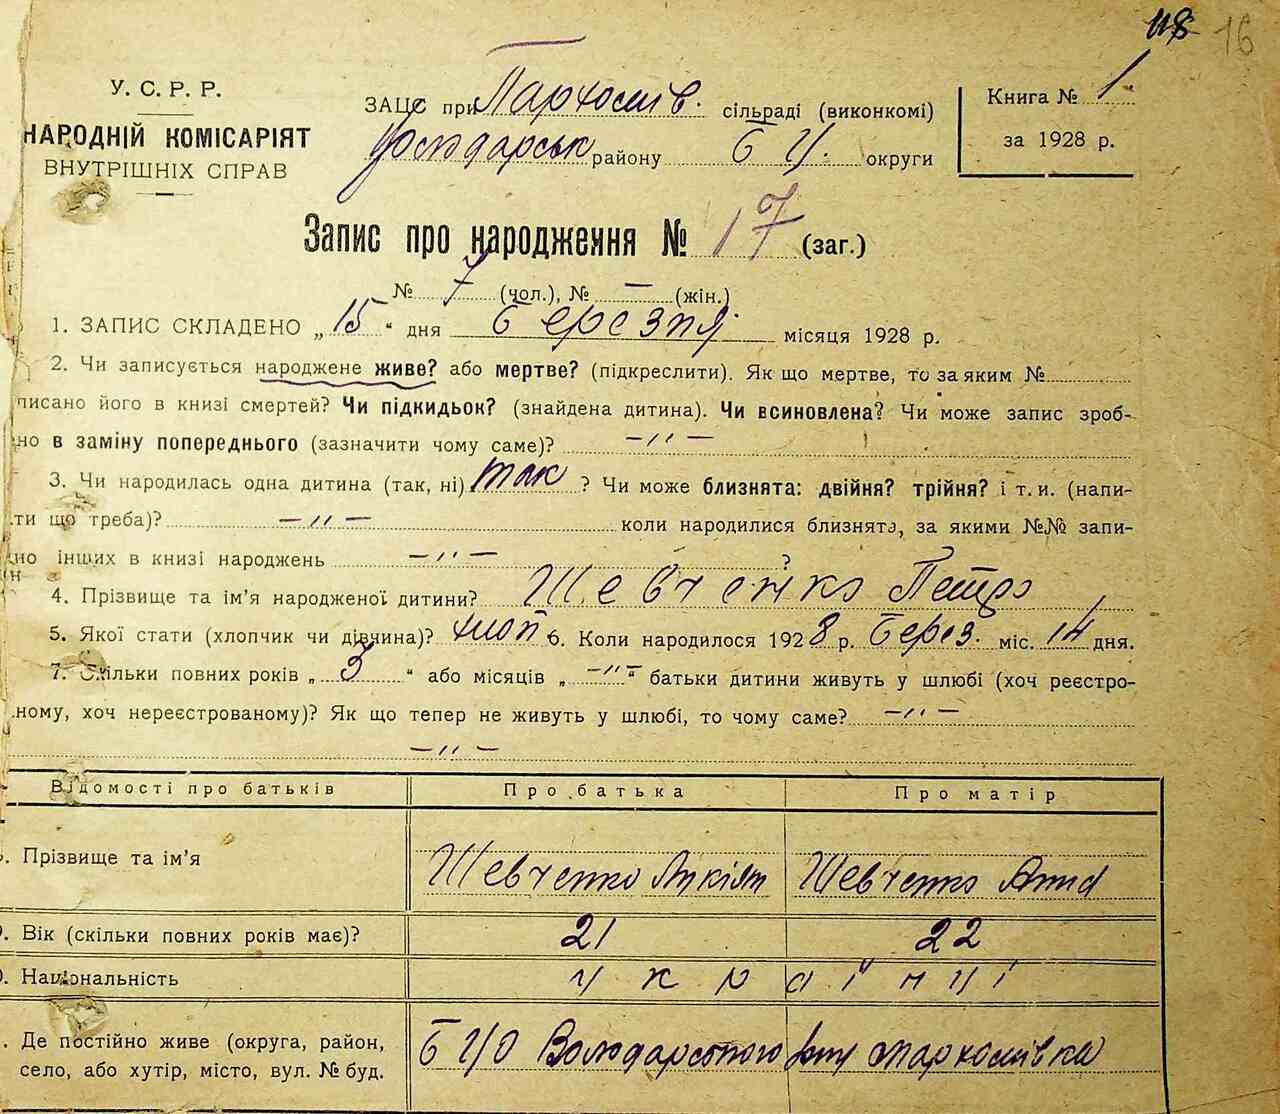 118 16
У. С. Р. Р.
НАРОДНІЙ КОМІСАРІЯТ
ВНУТРІШНІХ СПРАВ
ЗАЦС при Пархомів. сільраді (виконкомі)
Володарськ району Б Ц. округи
Книга № 1
за 1928 р.
Запис про народження № 17 (заг.)
№ 7 (чол.), № — (жін.)
1. ЗАПИС СКЛАДЕНО „ 15 “ дня Березня місяця 1928 р.
2. Чи записується народжене живе? або мертве? (підкреслити). Як що мертве, то за яким №
писано його в книзі смертей? Чи підкидьок? (знайдена дитина). Чи всиновлена? Чи може запис зроб-
но в заміну попереднього (зазначити чому саме)? —〃—
3. Чи народилась одна дитина (так, ні) так ? Чи може близнята: двійня? трійня? і т. и. (напи-
ти що треба)? —〃— коли народилися близнята, за якими №№ запи-
но інших в книзі народжень —〃— ?
4. Прізвище та ім’я народженої дитини? Шевченко Петро
5. Якої стати (хлопчик чи дівчина)? хлоп 6. Коли народилося 1928 р. Берез. міс. 14 дня.
7. Скільки повних років „ 3 “ або місяців „ —〃— “ батьки дитини живуть у шлюбі (хоч реєстро-
ному, хоч нереєстрованому)? Як що тепер не живуть у шлюбі, то чому саме? —〃—
—〃—
Відомості про батьків Про батька Про матір
Прізвище та ім’я Шевченко Шевченко
Вік (скільки повних років має)? 21 22
Національність українці
Де постійно живе (округа, район, БЦО Володарського Пархомівка
село, або хутір, місто, вул. № буд.